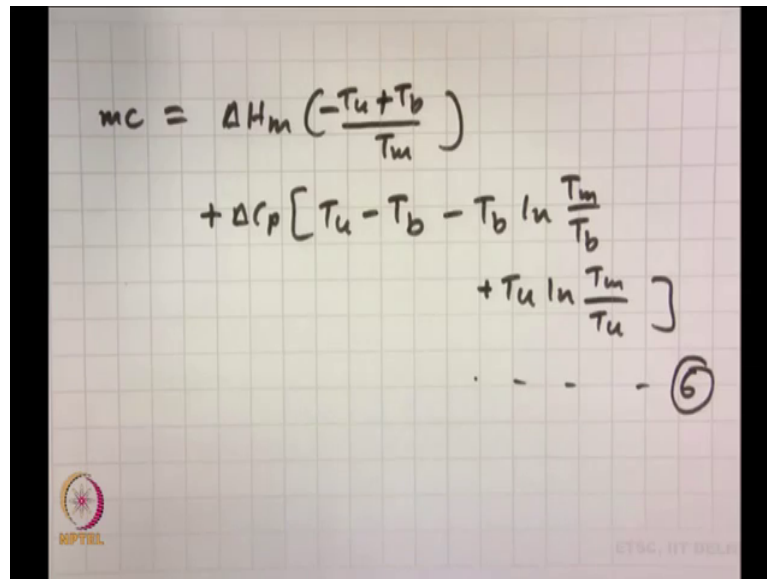 mc = ΔHm (-Tu + Tb / Tm)
+ ΔCp [ Tu - Tb - Tb ln Tm / Tb
+ Tu ln Tm / Tu ]
. - - - ⑥
NPTEL
ETSC, IIT DELHI